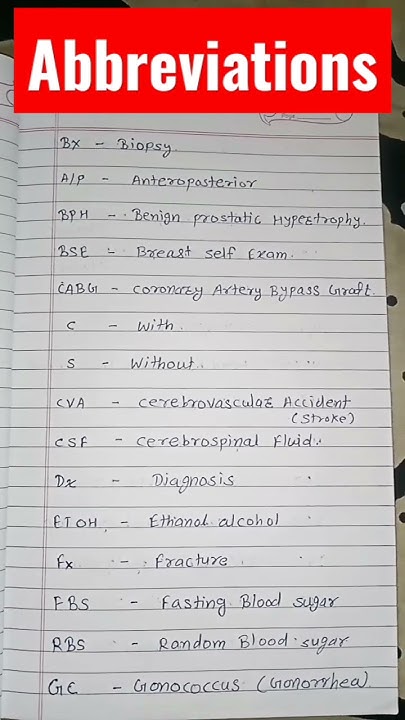 Abbreviations
Page
BX - Biopsy
A/P - Anteroposterior
BPH - Benign prostatic Hypertrophy.
BSE - Breast self Exam.
CABG - coronary Artery Bypass Graft.
C - With.
S - Without.
CVA - cerebrovascular Accident
(stroke)
CSF - cerebrospinal Fluid.
Dx - Diagnosis
ETOH - Ethanol alcohol
Fx - Fracture
FBS - Fasting Blood sugar
RBS - Random Blood sugar
GC - Gonococcus (Gonorrhea)